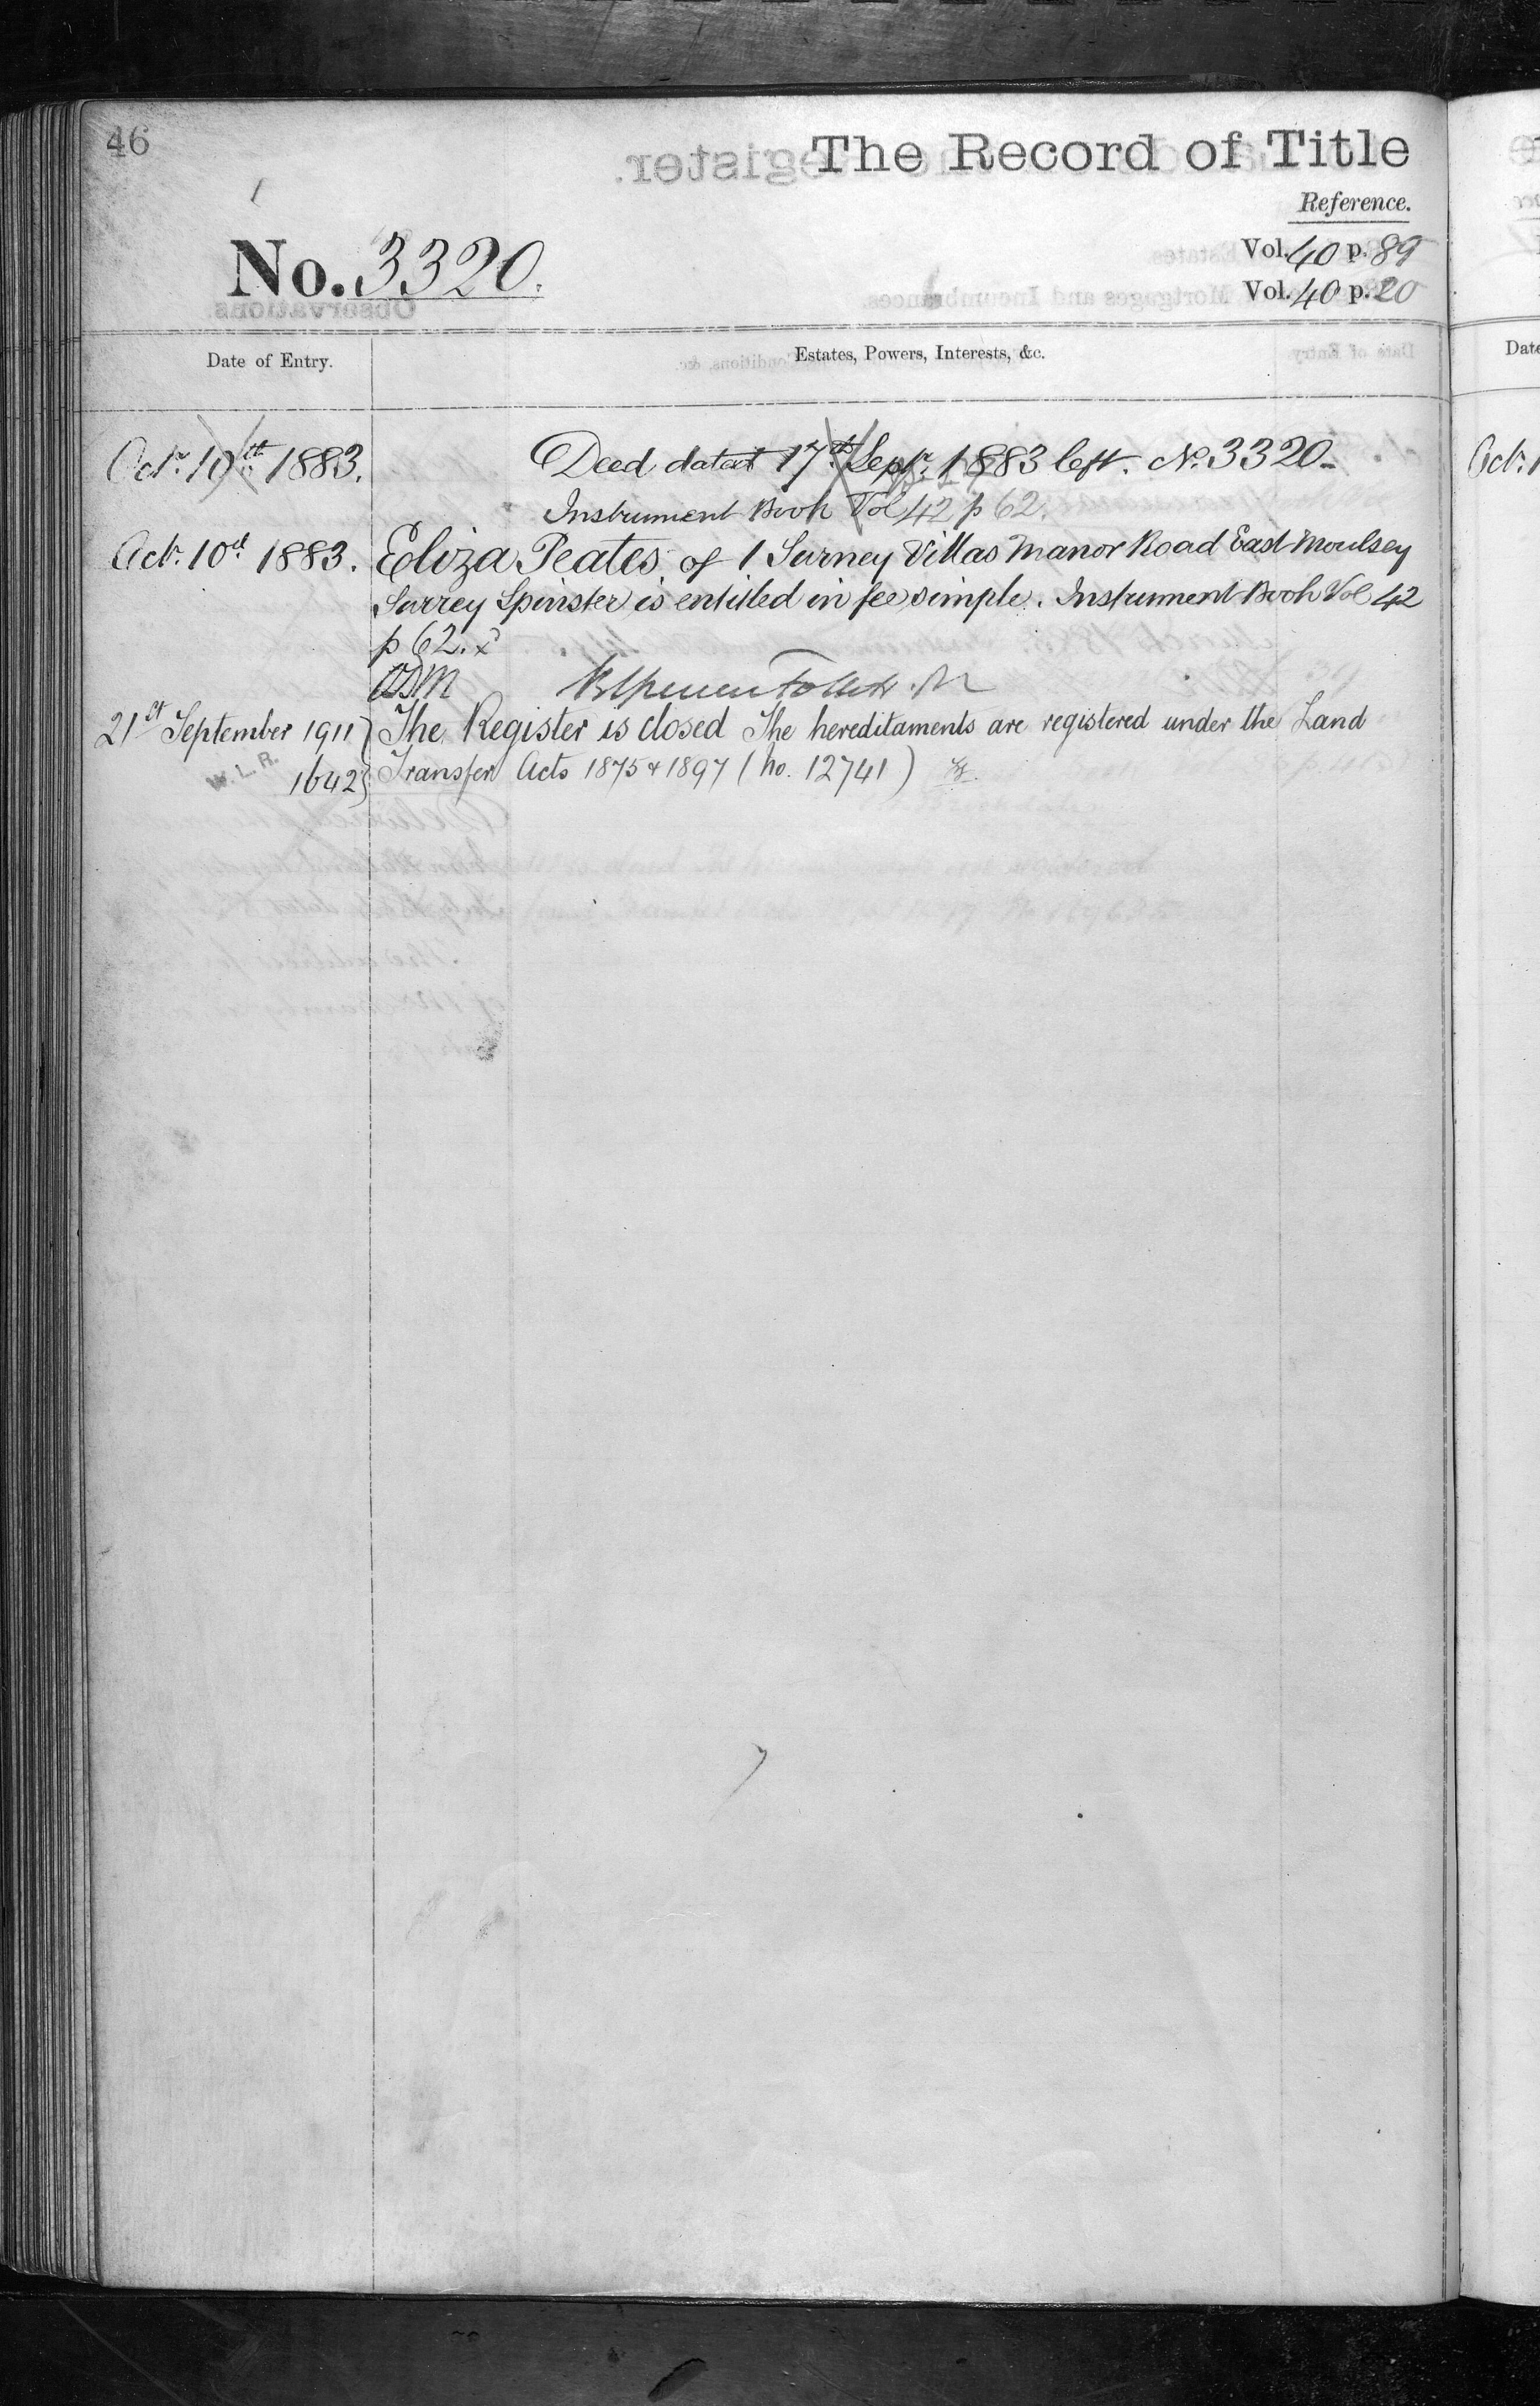 46
The Record of Title
Reference.
No. 3320.
Vol. 40 p. 89
Vol. 40 p. 20
Date of Entry.
Estates, Powers, Interests, &c.
Octr. 10th 1883.
Deed dated 17th Septr. 1883 left. No. 3320.
Instrument Book Vol 42 p 62.
Octr. 10th 1883.
Eliza Peates of 1 Surney Villas Manor Road East Moulsey
Surrey Spinster is entitled in fee simple. Instrument Book Vol 42
p 62.
21st September 1911
The Register is closed The hereditaments are registered under the Land
W.L.R.
1642
Transfer Acts 1875 & 1897 (No. 12741)